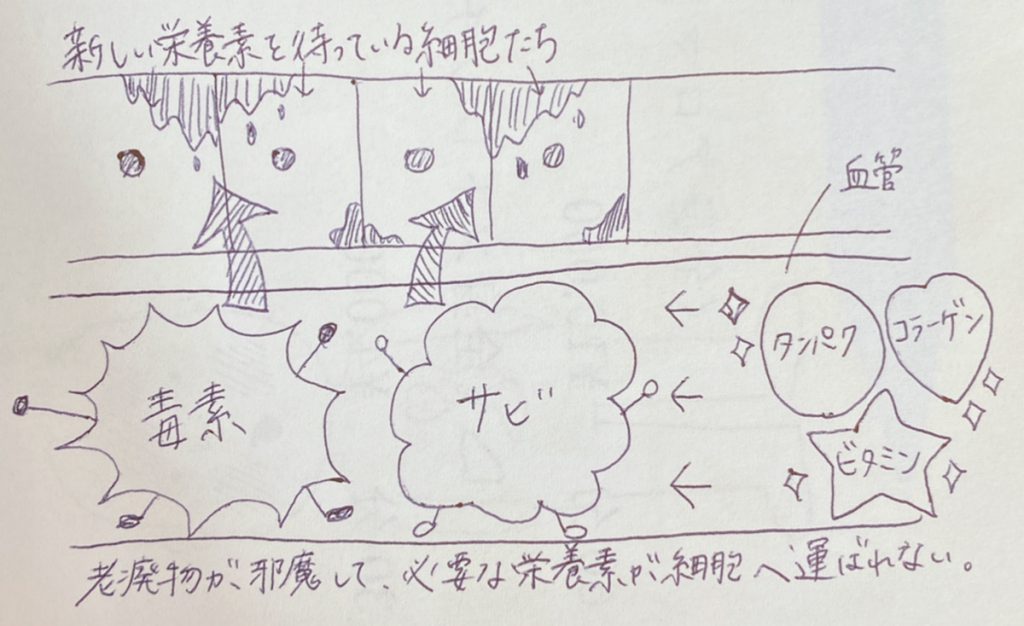 新しい栄養素を待っている細胞たち
血管
タンパク
コラーゲン
毒素
サビ
ビタミン
老廃物が邪魔して、必要な栄養素が細胞へ運ばれない。